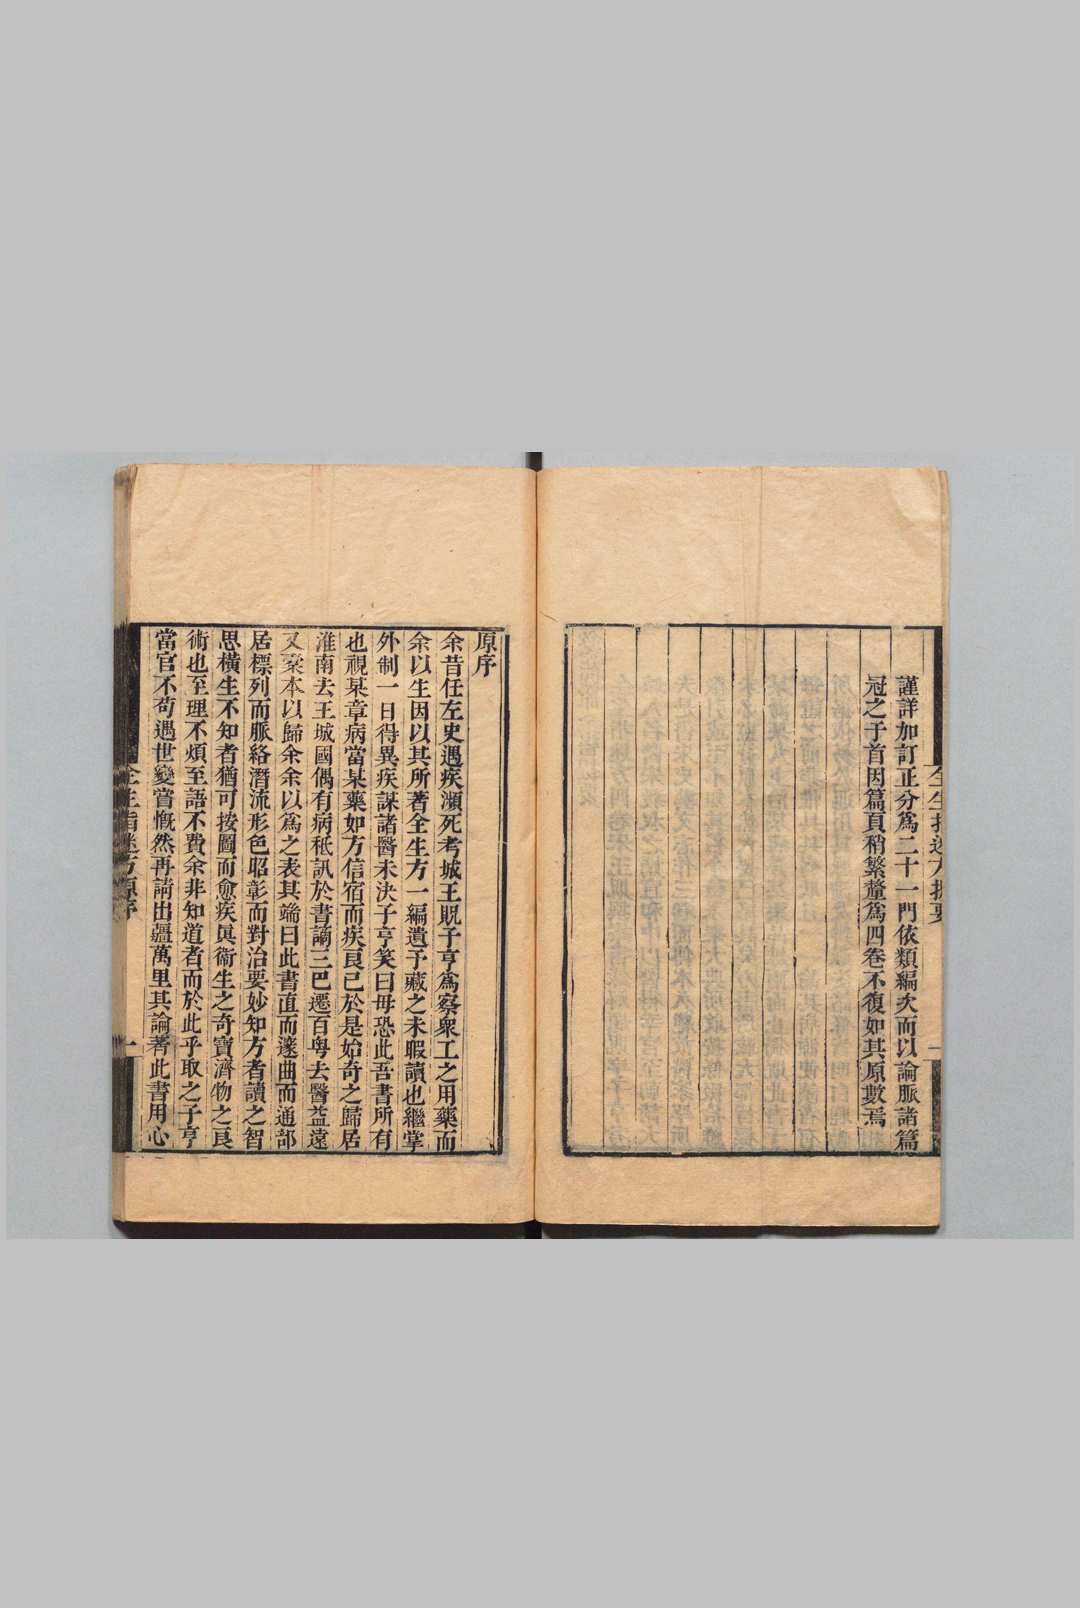 謹詳加訂正分爲二十一門依類編次而以論脈諸篇
冠之于首因篇頁稍繁釐爲四卷不復如其原數焉
原序
余昔任左史遇疾瀕死考城王貺子亨爲察衆工之用藥而
余以生因以其所著全生方一編遺予藏之未暇讀也繼掌
外制一日得異疾謀諸醫未決子亨笑曰毋恐此吾書所有
也視某章病當某藥如方信宿而疾良已於是始奇之歸居
淮南去王城國偶有病秪訊於書謫三巴遷百粤去醫益遠
又槖本以歸余余以爲之表其端曰此書直而邃曲而通部
居標列而脈絡潛流形色昭彰而對治要妙知方者讀之智
思橫生不知者猶可按圖而愈疾眞衞生之奇寶濟物之良
術也至理不煩至語不費余非知道者而於此乎取之子亨
當官不苟遇世變嘗慨然再請出疆萬里其論著此書用心
全生指迷方原序
一